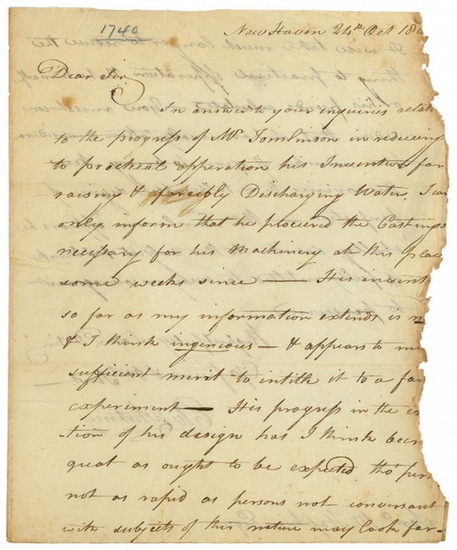 1740
New Haven 24th Oct 180
Dear Sir,
In answer to your inquiries relat
to the progress of Mr. Tomlinson in reducing
to practical opperation his Invention for
raising & forcibly Discharging Water I can
only inform that he procured the Castings
necessary for his Machinery at this place
some weeks since — It is
so far as my information extends is n
& I think ingenious — & appears to m
sufficient merit to intitle it to a fair
experiment — It is progress in the ex
tion of his design has I think been
great as ought to be expected tho' per
not as rapid as persons not conversant
with subjects of this nature may Look for —